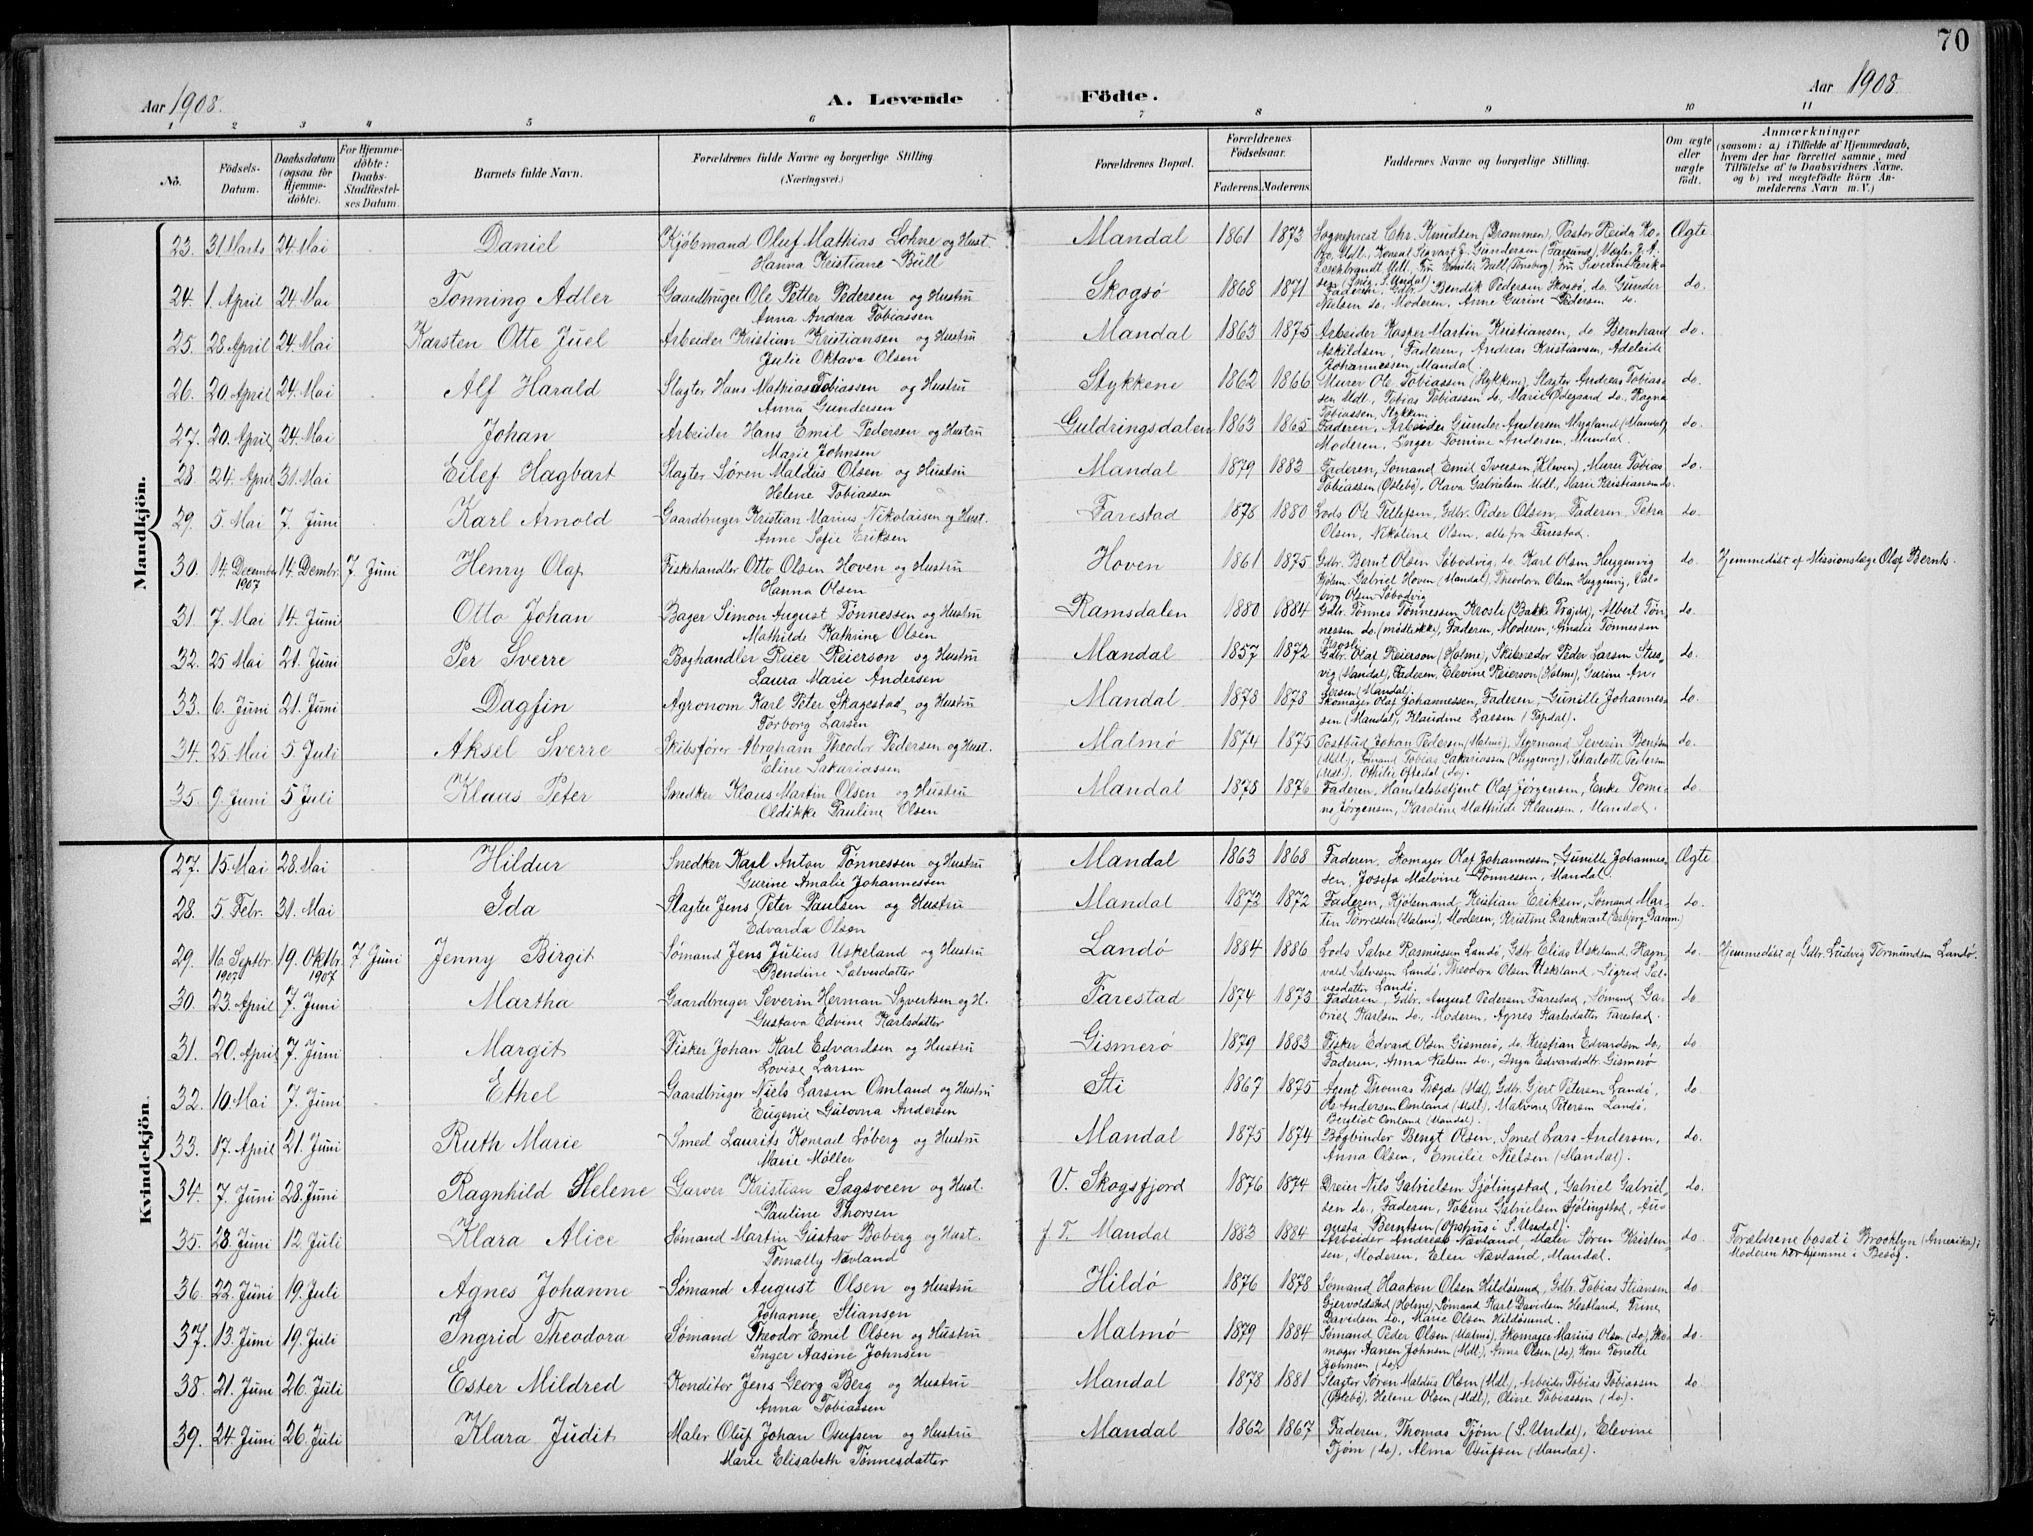 70
Aar 1908.
A. Levende Födte.
Aar 1908
1 2 3 4 5 6 7 8 9 10 11
No.
Födsels-
Datum.
Daabsdatum
(ogsaa for
Hjemme-
döbte).
For Hjemme-
döbte:
Daabs-
Stadfæstel-
ses Datum.
Barnets fulde Navn.
Forældrenes fulde Navne og borgerlige Stilling.
(Næringsvei.)
Forældrenes Bopæl.
Forældrenes
Födselsaar.
Faderens. Moderens.
Faddernes Navne og borgerlige Stilling.
Om ægte
eller
uægte
födt.
Anmærkninger
(saasom: a) i Tilfælde af Hjemmedaab,
hvem der har forrettet samme, med
Tilföielse af to Daabsvidners Navne,
og b) ved uægtefödte Börn An-
melderens Navn m. V.)
Mandkjön.
23. 31 Marts 24. Mai Daniel Kjöbmand Oluf Mathias Lohne og Hust. Mandal 1861 1873 Sogneprest Chr. Knudsen (Drammen), Pastor Reidar Ko- Ægte
Hanna Kristiane Bull
24. 1. April 24. Mai Tønning Adler Gaardbruger Ole Petter Pedersen og Hustru Skogsø 1868 1871 Faderen, Gdbr. Bendik Pedersen Skogsø, do. Gunder do.
Anna Andrea Tobiassen Nielsen do. Moderen, Anne Gurine Pedersen do.
25. 28. April 24. Mai Karsten Otto Juel Arbeider Kristian Kristiansen og Hustru Mandal 1863 1875 Arbeider Kasper Martin Kristiansen, do. Bernhard do.
Julie Oktava Olsen Askildsen, Faderen, Andreas Kristiansen, Adelaide
Johannessen, Mandal.
26. 20. April 24. Mai Alf Harald Slagter Hans Mathias Tobiassen og Hustru Stykkene 1862 1866 Murer Ole Tobiassen (Stykkene), Slagter Andreas Tobias- do.
Anna Gundersen sen Mdl., Tobias Tobiassen do, Marie Ødegaard do. Ragna
Tobiassen, Stykkene.
27. 20. April 24. Mai Johan Arbeider Hans Emil Pedersen og Hustru Guldringsdalen 1863 1865 Faderen, Arbeider Gunder Andersen Mygland (Mandal), do.
Marie Johnsen Moderen, Inger Tomine Andersen, Mandal.
28. 24. April 31. Mai Eilef Hagbart Slagter Søren Maldus Olsen og Hustru Mandal 1879 1883 Faderen, Sømand Emil Iversen, (Kleven), Murer Tobias do.
Helene Tobiassen Tobiassen (Østebø), Olava Gabrielsen Mdl., Marie Kristiansen do.
29. 5. Mai 7. Juni Karl Arnold Gaardbruger Kristian Marius Nikolaisen og Hust. Farestad 1878 1880 Lods Ole Tellefsen, Gdbr. Peder Olsen, Faderen, Petra do.
Anne Sofie Eriksen Olsen, Nikoline Olsen, alle fra Farestad.
30. 14. December 1907 14. Dembr. 7. Juni Henry Olaf Fiskehandler Otto Olsen Hoven og Hustru Hoven 1861 1875 Gdbr. Bernt Olsen Søbodvig, do. Karl Olsen Huggenvig do Hjemmedöbt af Missionslæge Olaf Bernts.
Hanna Olsen Kjøbm. Gabriel Hoven (Mandal), Theodora Olsen Huggenvig, Val-
borg Olsen Søbodvig
31. 7. Mai 14. Juni Otto Johan Bager Simon August Tønnessen og Hustru Ramsdalen 1880 1884 Gdbr. Tønnes Tønnessen Krosle (Bakke Prgjeld), Albert Tøn- do.
Mathilde Kathrine Olsen nessen do. (mødte ikke), Faderen, Moderen, Amalie Tønnessen
Krosle.
32. 25 Mai 21. Juni Per Sverre Boghandler Reier Reierson og Hustru Mandal 1857 1872 Gdbr. Olaf Reierson (Holme), Skibsreder Peder Larsen Stus- do.
Laura Marie Andersen vig (Mandal), Faderen, Elevine Reierson (Holme), Gurine An-
dersen (Mandal).
33. 6. Juni 21. Juni Dagfin Agronom Karl Peter Skagestad og Hustru Mandal 1878 1878 Skomager Olaf Johannessen, Faderen, Gunille Johannes- do.
Torborg Larsen sen (Mandal), Klaudine Larsen
34. 25 Mai 5. Juli Aksel Sverre Skibsfører Abraham Theodor Pedersen og Hust. Malmø 1874 1875 Postbud Johan Pedersen (Malmø), Styrmand Severin Berntsen do.
Eline Sakariassen (Mdl.), Sømand Tobias Sakariassen (Huggenvig), Charlotte Pedersen
(Mdl.), Othilie Oftedal (do).
35. 9. Juni 5 Juli Klaus Peter Snedker Klaus Martin Olsen og Hustru Mandal 1878 1876 Faderen, Handelsbetjent Olaf Jørgensen, Enke Tomi- do.
Oldikke Pauline Olsen ne Jørgensen, Karoline Mathilde Klausen, Mandal.
Kvindekjön.
27. 15. Mai 28. Mai Hildur Snedker Karl Anton Tønnessen og Hustru Mandal 1863 1868 Faderen, Skomager Olaf Johannessen, Gunille Johannes- Ægte
Gurine Amalie Johannessen sen, Josefa Malvine Tønnessen, Mandal.
28. 5. Febr. 31. Mai Ida Slagter Jens Peter Paulsen og Hustru Mandal 1873 1872 Faderen, Kjöbmand Kristian Eriksen, Sømand Mar- do.
Edvarda Olsen tin Tørressen (Malmø), Moderen, Kristine Dankwart (Esbjerg Danm.)
29. 16. Septbr. 1907 19. Oktbr. 1907 7. Juni Jenny Birgit Sømand Jens Julius Uskeland og Hustru Landø 1884 1886 Lods Salve Rasmussen Landø, Gdbr. Elias Uskeland, Ragn- do. Hjemmedöbt af Gdbr. Ludvig Tormundsen Landø.
Bendine Salvesdatter vald Salvesen Landø. Theodora Olsen Uskeland, Sigrid Sal-
vesdatter Landø.
30. 23. April 7. Juni Martha Gaardbruger Severin Herman Syvertsen og H. Farestad 1874 1873 Faderen, Gdbr. August Pedersen Farestad, Sømand Ga- do
Gustava Edvine Karlsdatter briel Karlsen do., Moderen, Agnes Karlsdatter Farestad.
31. 20. April 7. Juni Margit Fisker Johan Karl Edvardsen og Hustru Gismerø 1879 1883 Fisker Edvard Olsen Gismerø, do. Kristian Edvardsen do. do
Lovise Larsen Faderen, Anna Nielsen do., Inga Edvardsdtr. Gismerø
32. 10 Mai 7. Juni Ethel Gaardbruger Niels Larsen Omland og Hustru Sti 1867 1875 Agent Thomas Trægde (Mdl), Gdbr. Gjert Petersen Landø, do.
Eugenie Gulovna Andersen Ole Andersen Omland (Mdl.), Malvine Petersen Landø,
Bergliot Omland (Mandal).
33. 17. April 21. Juni Ruth Marie Smed Laurits Konrad Løberg og Hustru Mandal 1875 1874 Bogbinder Bengt Olsen, Smed Lars Andersen, do.
Marie Møller Anna Olsen, Emilie Nielsen (Mandal).
34. 7. Juni 28. Juni Ragnhild Helene Garver Kristian Sagsveen og Hust. V. Skogsfjord 1876 1874 Dreier Nils Gabrielsen Sjølingstad, Gabriel Gabriel- do.
Pauline Thorsen sen do., Faderen, Tobine Gabrielsen Sjølingstad, Au-
gusta Berntsen (Opshus i S. Undal).
35. 28. Juni 12. Juli Klara Alice Sømand Martin Gustav Boberg og Hust. f. T. Mandal 1883 1884 Arbeider Andreas Nævland, Maler Søren Kristen- do Forældrene bosat i Brooklyn (Amerika);
Tomally Nævland sen, Moderen, Elen Nævland, Mandal. Moderen her hjemme i Besøg.
36. 22. Juni 19. Juli Agnes Johanne Sømand August Olsen og Hustru Hildø 1876 1878 Sømand Haakon Olsen Hildøsund, Gdbr. Tobias Stiansen do
Johanne Stiansen Gjervoldstad (Holme), Sømand Karl Davidsen Hestland, Trine
Davidsen do., Marie Olsen Hildøsund.
37. 13. Juni 19. Juli Ingrid Theodora Sømand Theodor Emil Olsen og Hustru Malmø 1879 1884 Sømand Peder Olsen (Malmø), Skomager Marius Olsen (do), Sko- do.
Inger Aasine Johnsen mager Aanen Johnsen (Mdl.), Anna Olsen (do), Kone Tonette
Johnsen (do).
38. 21. Juni 26. Juli Ester Mildred Konditor Jens Georg Berg og Hustru Mandal 1878 1881 Slagter Søren Maldus Olsen (Mdl.), Arbeider Tobias Tobiassen do
Anna Tobiassen (Østebø), Helene Olsen (Mdl), Oline Tobiassen (do).
39. 24. Juni 26. Juli Klara Judit Maler Oluf Johan Osufsen og Hustru Mandal 1862 1867 Faderen, Thomas Tjøm (S. Undal), Elevine
Marie Elisabeth Tönnesdatter Tjøm (do), Alma Osufsen (Mandal).